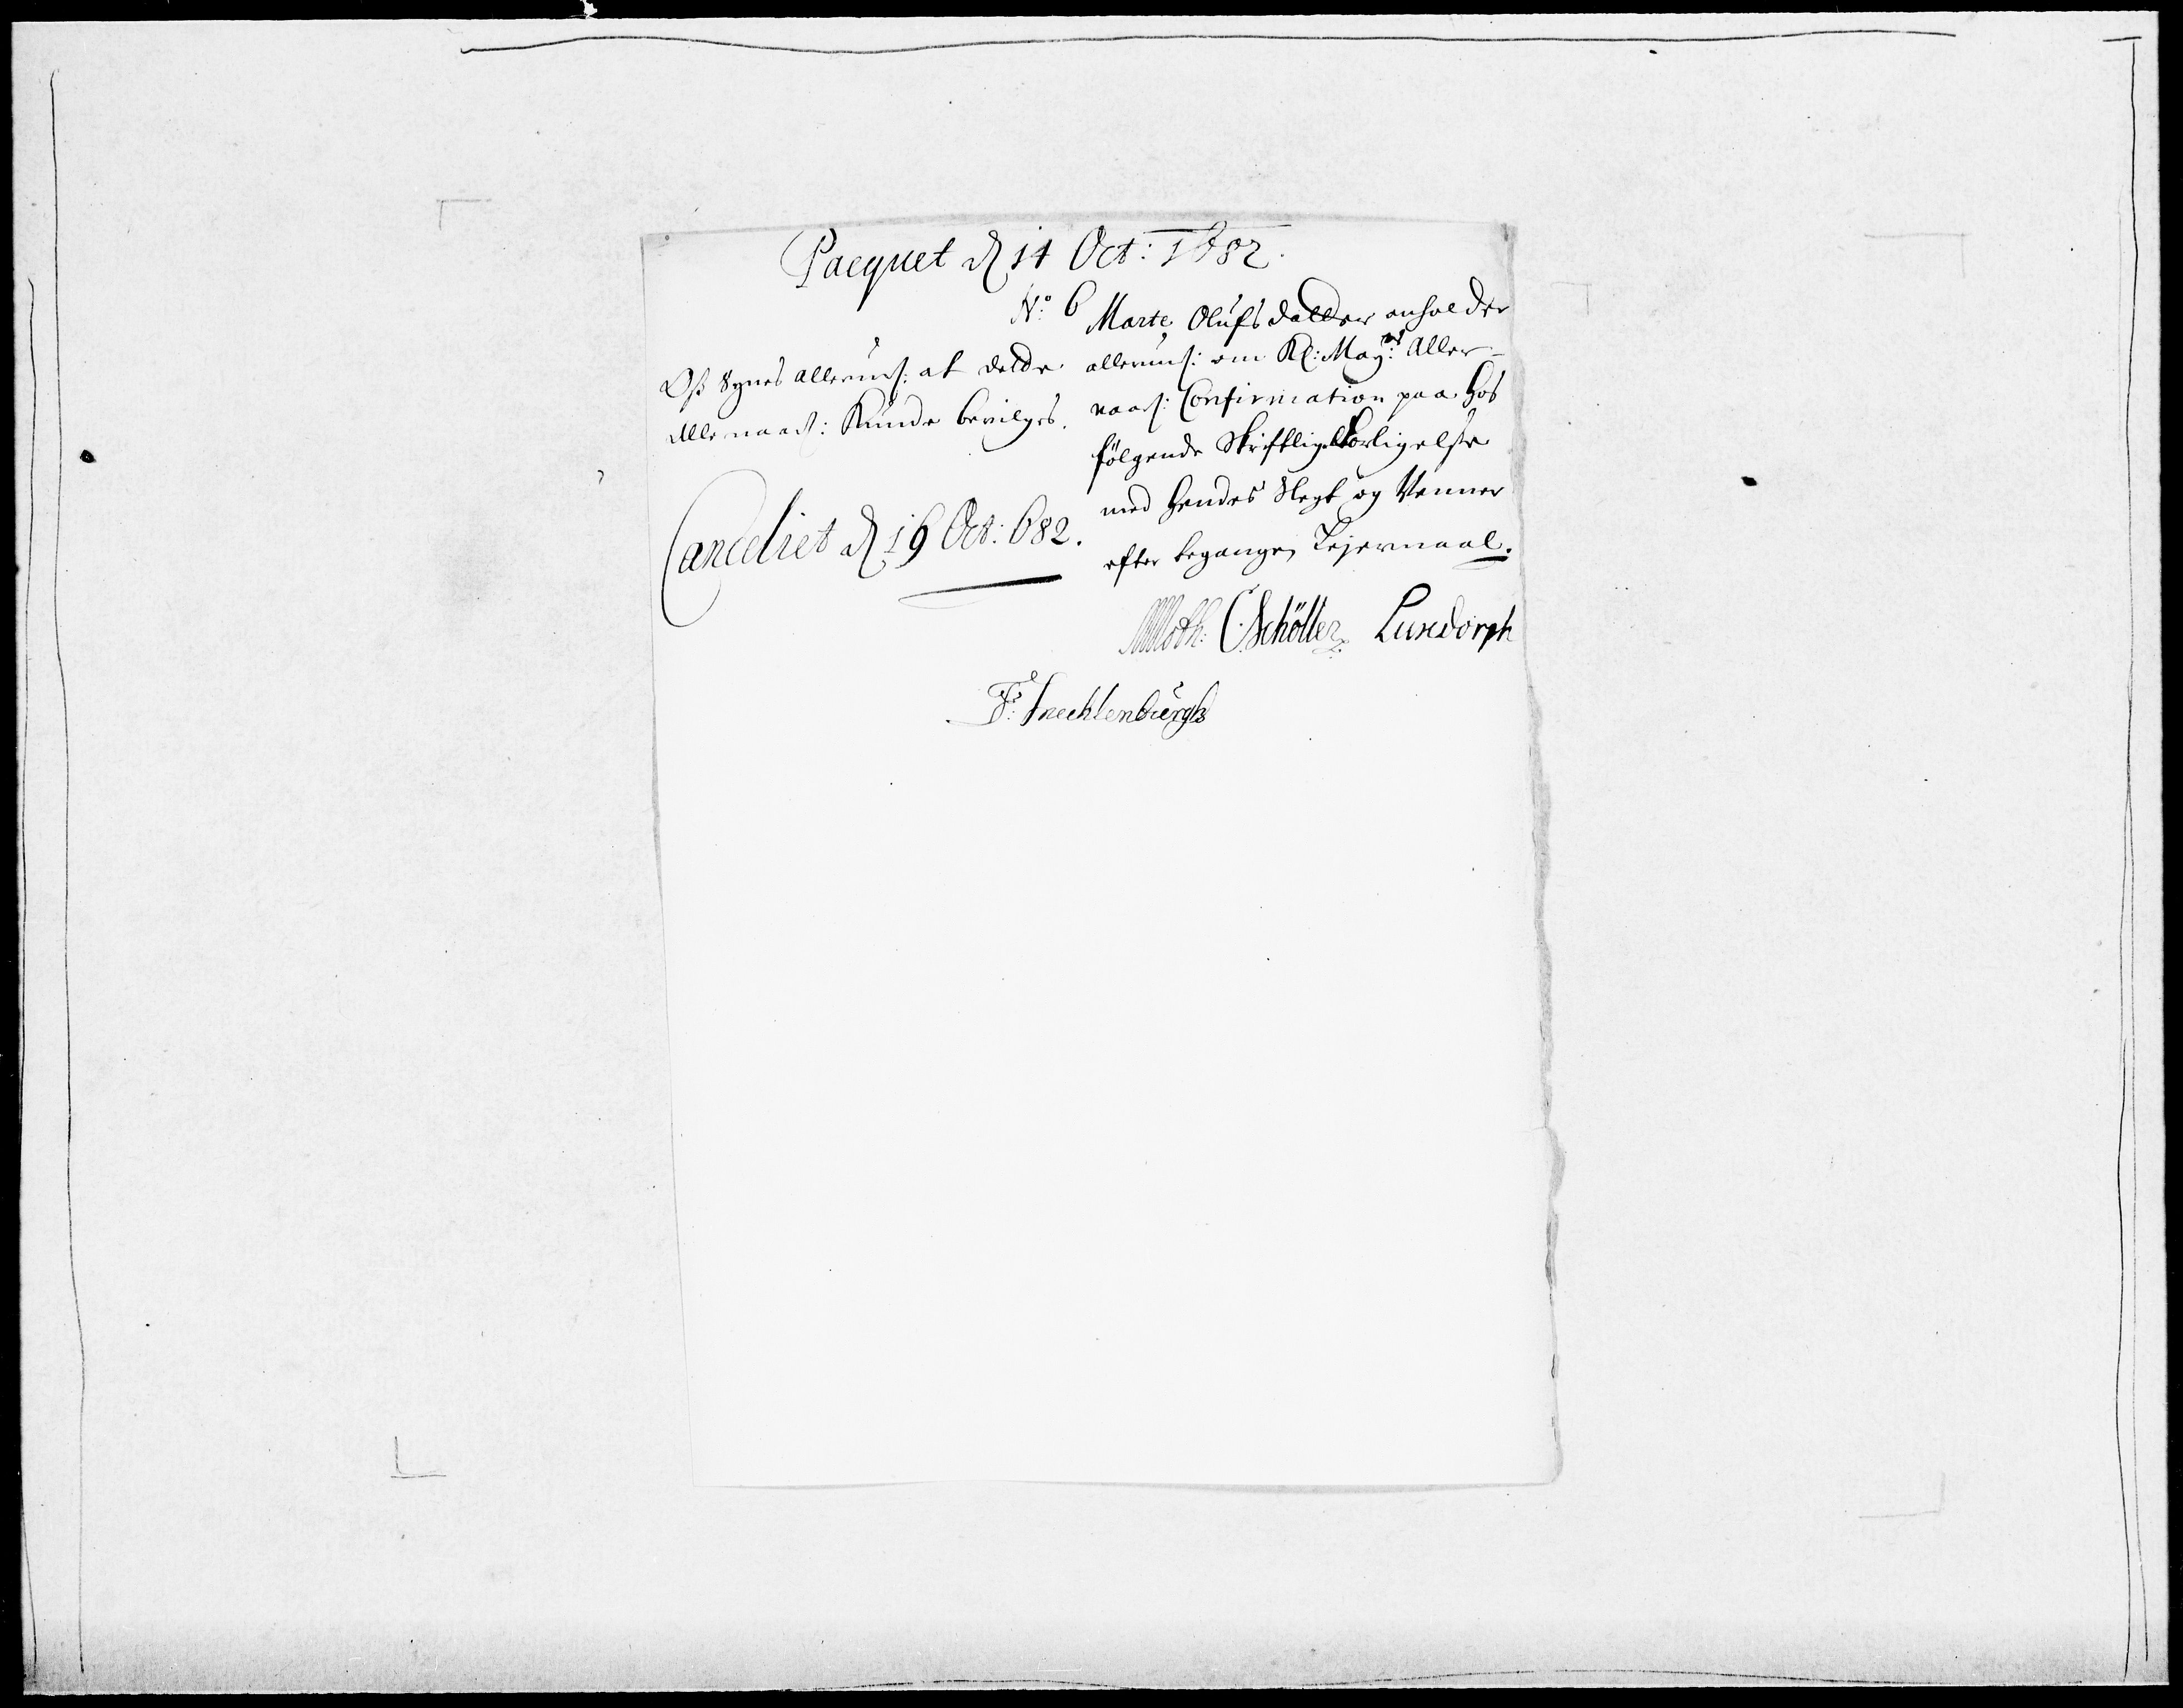 Pacquet d 14 Oct: 1682.
No: 6
Marte Olufsdatter anholder
allerund: om Kl: May:ts Aller-
naad: Confirmation paa hos
følgende Skriftlig forligelse
med hendes Slegt og Venner
efter begangen Lejermaal.
Oss Synes allerund: at dette
Allernaad: Kunde bevilges.
Cancelliet d 16 Oct: 682.
Moth: CSchöller Luxdorph
Fr: Mecklenburgh